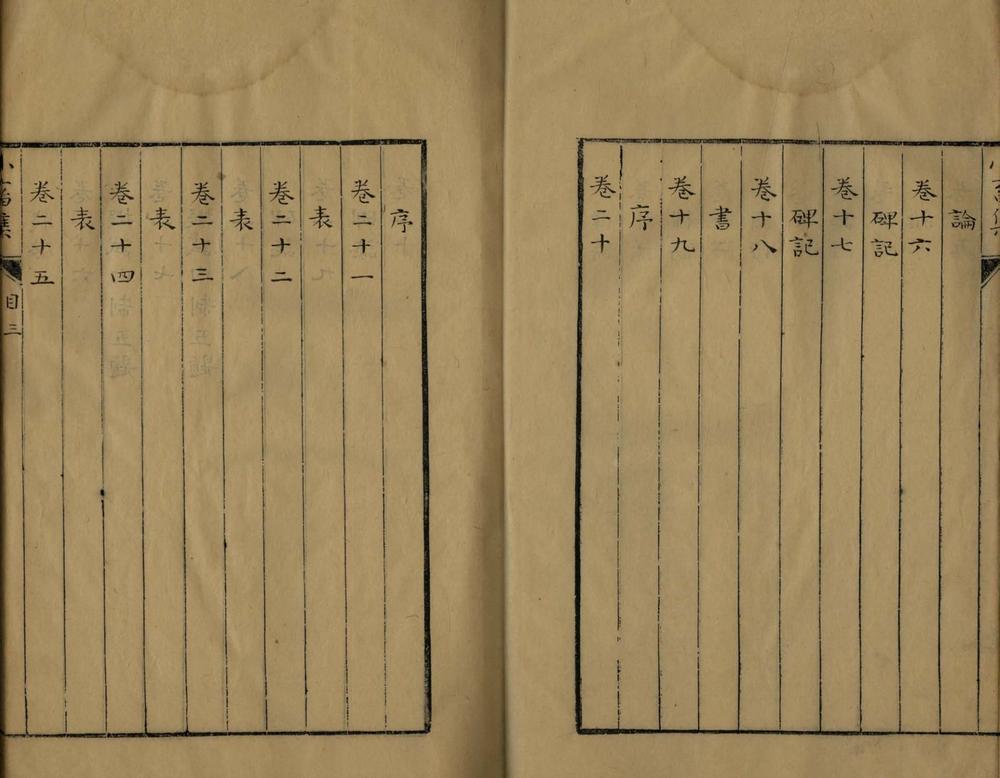 論
卷十六
碑記
卷十七
碑記
卷十八
書
卷十九
序
卷二十
序
卷二十一
表
卷二十二
表
卷二十三
表
卷二十四
表
卷二十五
小畜集
目三